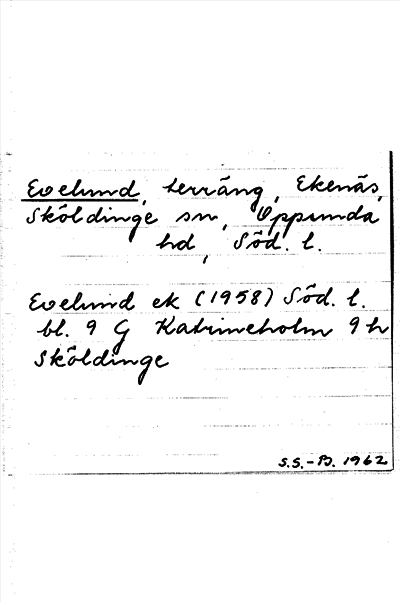 Evelund, terräng, Ekenäs,
Sköldinge sn, Oppunda
hd, Söd. l.
Evelund ek (1958) Söd. l.
bl. 9 G Katrineholm 9 h
Sköldinge
S.S.-B. 1962